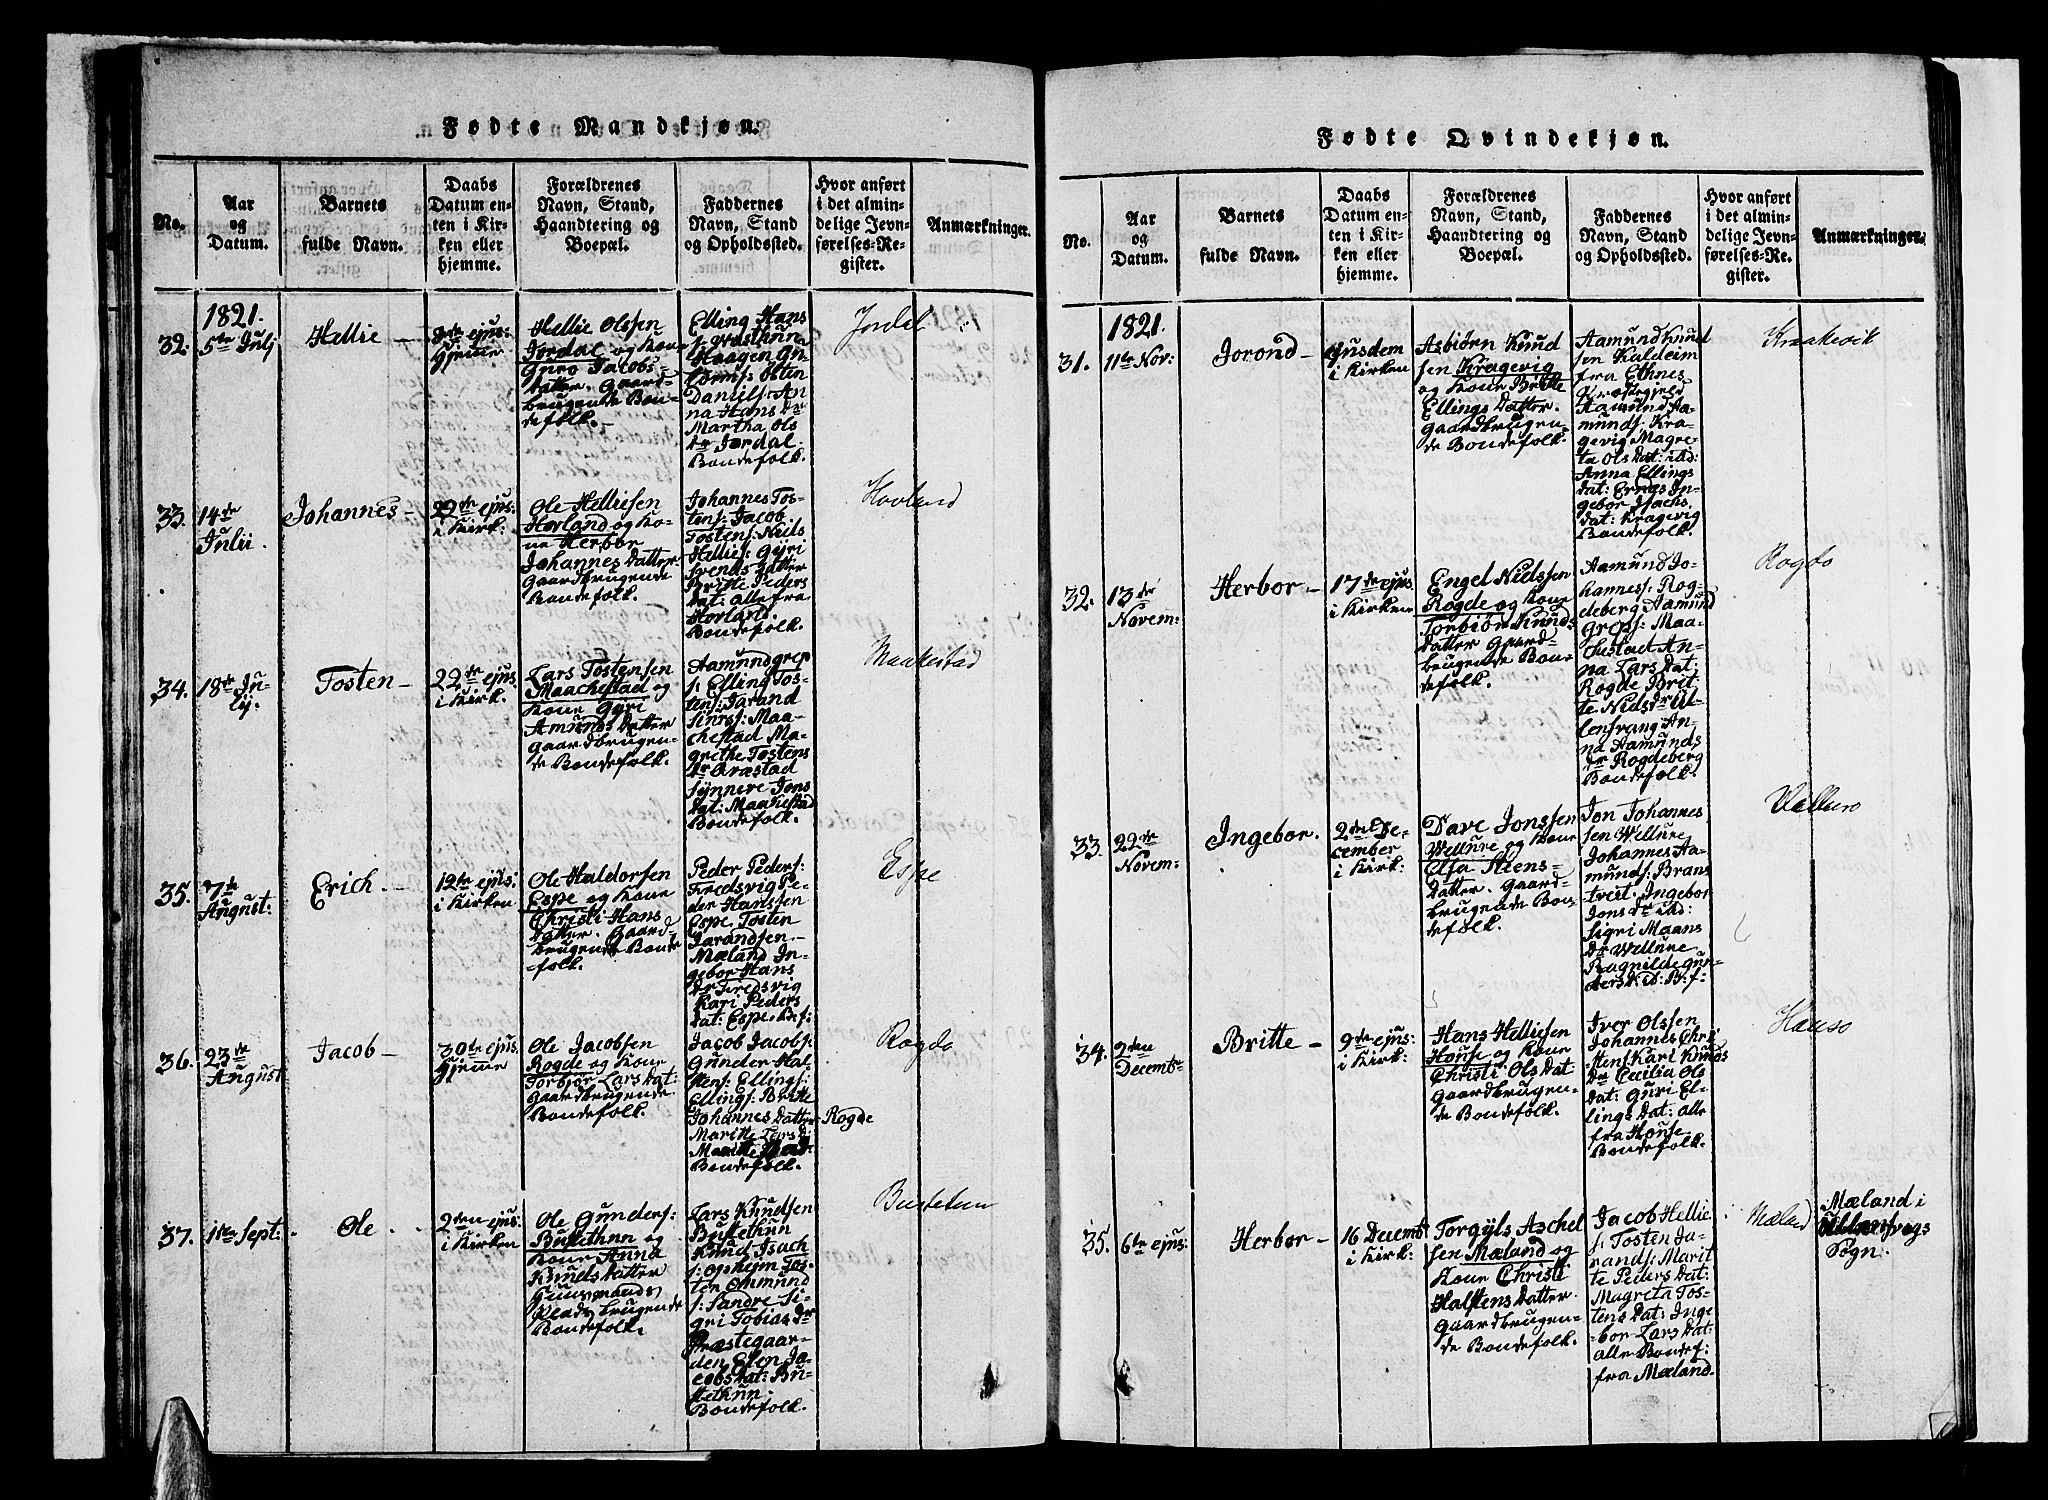 Fødte Mandkjøn.
No.
Aar
og
Datum.
Barnets
fulde Navn.
Daabs
Datum en-
ten i Kir-
ken eller
hjemme.
Forældrenes
Navn, Stand,
Haandtering og
Boepæl.
Faddernes
Navn, Stand
og Opholdssted.
Hvor anført
i det almin-
delige Jevn-
førelses-Re-
gister.
Anmærkninger.
1821.
32.
5te Julj
Hellie
8de ejus:
Hjemme
Hellie Olssen
Jordal og Kone
Gyro Jacobs-
datter. Gaard-
brugende Bon-
defolk.
Elling Hans
Haagen Gu
Daniels: An
na Hans Dr
Martha Ols
dr Jordal.
Bondefolk.
Jordal
33.
14de
Julii.
Johannes
22de ejus:
i Kirk:
Ole Helliesen
Hovland og Ko-
ne Herbor
Johannes Datter
Gaardbrugende
Bondefolk.
Johannes Tos-
tens: Jacob
Tostens: Niels
Hellies: Gyri
Svends Datter
Britte Peders
Dat: alle fra
Hovland.
Bondefolk.
Hovland
34.
18de Ju-
lij.
Tosten
22de ejus
i Kirk.
Lars Tostensen
Maachestad og
Kone Gyri
Amunds Datter
Gaardbrugen-
de Bondefolk.
Aamund Grep
s: Elling Tos-
tens: Jarand
Sjurs: Maa-
chestad Ma-
grethe Tostens
dr Aræstad
Synnere Jons
Dat: Maakestad
Bondefolk.
Maakestad
35.
7de
August:
Erich.
12te ejus:
i Kirken
Ole Haldorsen
Espe og Kone
Christi Hans
Datter. Gaard-
brugende Bonde
folk.
Peder Peders:
Fredsvig Pe-
der Hanssen
Espe. Tosten
Jarandsen
Mæland In-
gebor Hans
Dr Fredsvig
Kari Peders
Dat: Espe. Bdef:
Espe
36.
23de
August
Jacob
30te ejus:
Hjemme
Ole Jacobsen
Rogde og Kone
Torbjør Lars Dat:
Gaardbrugende
Bondefolk.
Jacob Jacobs:
Gunder Hal-
stens: Ellings:
Ellings: Britte
Johannes Datter Rogde
Maritte Lars D:
Bondefolk.
Rogdo
37.
1ste Sept:
Ole
2den ejus:
i Kirken
Ole Gunders:
Bustethun og
Kone Anna
Knuds Datter
Huusmands
Pladsbrugende
Bondefolk.
Lars Knudsen
Bustethun
Knud Isach
s: Opheim Tos-
ten Ommund
s: Sandre Si-
gri Tobias Dr
Præstegaar-
den Elen Ja-
cobs Dat: Bu
stethun.
Bondefolk.
Bustetun
Fødte Qvindekjøn.
No.
Aar
og
Datum.
Barnets
fulde Navn.
Daabs
Datum en-
ten i Kir-
ken eller
hjemme.
Forældrenes
Navn, Stand,
Haandtering og
Boepæl.
Faddernes
Navn, Stand
og Opholdssted.
Hvor anført
i det almin-
delige Jevn-
førelses-Re-
gister.
Anmærkninger.
1821.
31.
11te Nov:
Jorond
ejusdem
i Kirken
Asbiørn Knud
sen Kragevig
og Kone Britte
Ellings Datter.
Gaardbrugen-
de Bondefolk.
Aamund Knud
sen Kaldeim
fra Ethnes
Præstegield
Aamund Aa-
munds: Kra-
gevig Magre-
ta Ols Dat: ibd:
Anna Ellings
Dat: Ernes In-
gebor Isachs
Dat: Kragevig
Bondefolk.
Kraakevik
32.
13de
Novem:
Herbor
17de ejus:
i Kirken
Engel Nielssen
Rogde og Kone
Torbiør Knuds
Datter Gaard-
brugende Bon-
defolk.
Aamund Jo-
hanness: Rog-
deberg Aamund
Greps: Maa-
chestad An-
na Lars Dat:
Rogde Brit-
te Niels Dr Ul-
lensvang An-
na Aamunds
Dr Rogdeberg
Bondefolk.
Rogdo
33.
22de
Novem:
Ingebor.
2den De-
cember
i Kirk:
Dave Jonssen
Vellure og Kone
Elsa Steens-
Datter. Gaard-
brugende Bon
defolk.
Jon Johannes
sen Vellure
Johannes Aa-
munds: Brans
tveit. Ingebor
Jons Dr ibd:
Sigri Maans
Dr Vellure
Ragnilde Gun-
ders D: ibd: B: f:
Vellure
34.
2den
Decemb
Britte
9de ejus:
i Kirk:
Hans Helliesen
House og Kone
Christi Ols Dat:
Gaardbrugen-
de Bondefolk.
Iver Olssen
Johannes Chri
stens Kari Knuds
Dr Cecilia Ols
Dat: Guri El-
lings Dat: alle
fra House
Bondefolk.
Hauso
35.
6te ejus:
Herbor
16 Decemb:
i Kirk:
Torgyls Aschel
sen Mæland og
Kone Christi
Halstens Datter
Gaardbrugen-
de Bondefolk.
Jacob Hellie
s: Tosten Ja-
rands: Marit
te Peders Dat:
Magreta Tos-
tens Dat: Inge-
bor Lars Dat:
alle Bondef:
fra Mæland.
Mæland
Mæland i
Sogn.